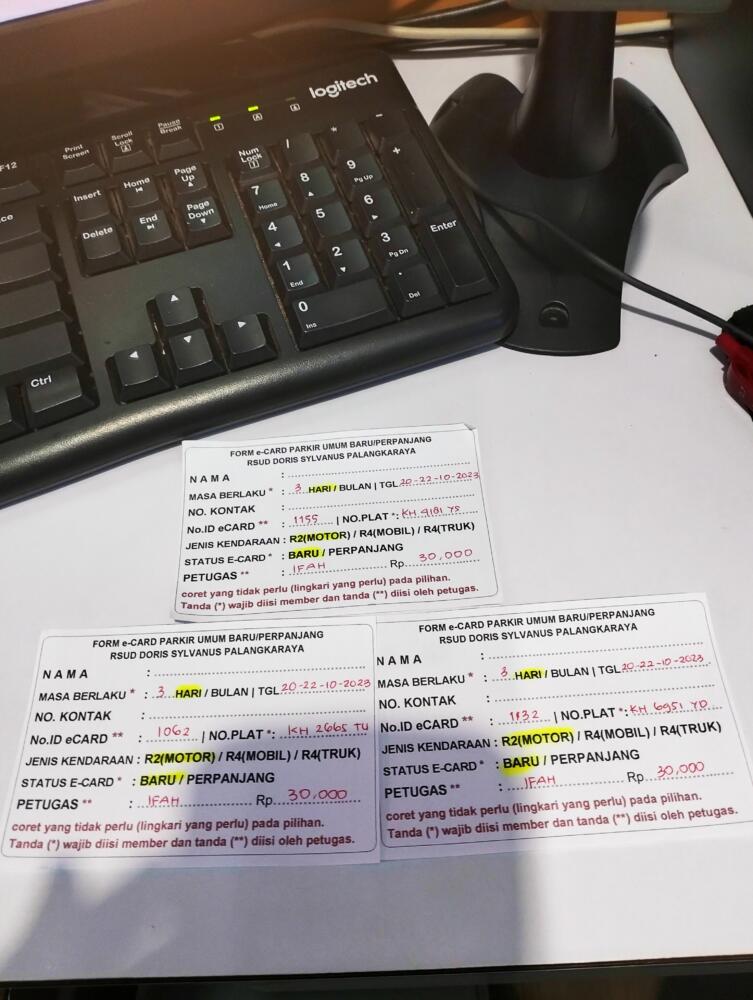 logitech
F12
Print Screen
Scroll Lock
Pause Break
1
A
Insert
Home
Page Up
Delete
End
Page Down
Ctrl
Num Lock
/
*
-
7 Home
8
9 Pg Up
+
4
5
6
1 End
2
3 Pg Dn
Enter
0 Ins
. Del
FORM e-CARD PARKIR UMUM BARU/PERPANJANG
RSUD DORIS SYLVANUS PALANGKARAYA
N A M A :
MASA BERLAKU * : 3 HARI / BULAN | TGL 20-22-10-2023
NO. KONTAK :
No.ID eCARD ** : 1155 | NO.PLAT *: KH 4181 YS
JENIS KENDARAAN : R2(MOTOR) / R4(MOBIL) / R4(TRUK)
STATUS E-CARD * : BARU / PERPANJANG
PETUGAS ** : IFAH Rp 30,000
coret yang tidak perlu (lingkari yang perlu) pada pilihan.
Tanda (*) wajib diisi member dan tanda (**) diisi oleh petugas.
FORM e-CARD PARKIR UMUM BARU/PERPANJANG
RSUD DORIS SYLVANUS PALANGKARAYA
N A M A :
MASA BERLAKU * : 3 HARI / BULAN | TGL 20-22-10-2023
NO. KONTAK :
No.ID eCARD ** : 1062 | NO.PLAT *: KH 2665 TU
JENIS KENDARAAN : R2(MOTOR) / R4(MOBIL) / R4(TRUK)
STATUS E-CARD * : BARU / PERPANJANG
PETUGAS ** : IFAH Rp 30,000
coret yang tidak perlu (lingkari yang perlu) pada pilihan.
Tanda (*) wajib diisi member dan tanda (**) diisi oleh petugas.
FORM e-CARD PARKIR UMUM BARU/PERPANJANG
RSUD DORIS SYLVANUS PALANGKARAYA
N A M A :
MASA BERLAKU * : 3 HARI / BULAN | TGL 20-22-10-2023
NO. KONTAK :
No.ID eCARD ** : 1132 | NO.PLAT *: KH 6951 YD
JENIS KENDARAAN : R2(MOTOR) / R4(MOBIL) / R4(TRUK)
STATUS E-CARD * : BARU / PERPANJANG
PETUGAS ** : IFAH Rp 30,000
coret yang tidak perlu (lingkari yang perlu) pada pilihan.
Tanda (*) wajib diisi member dan tanda (**) diisi oleh petugas.